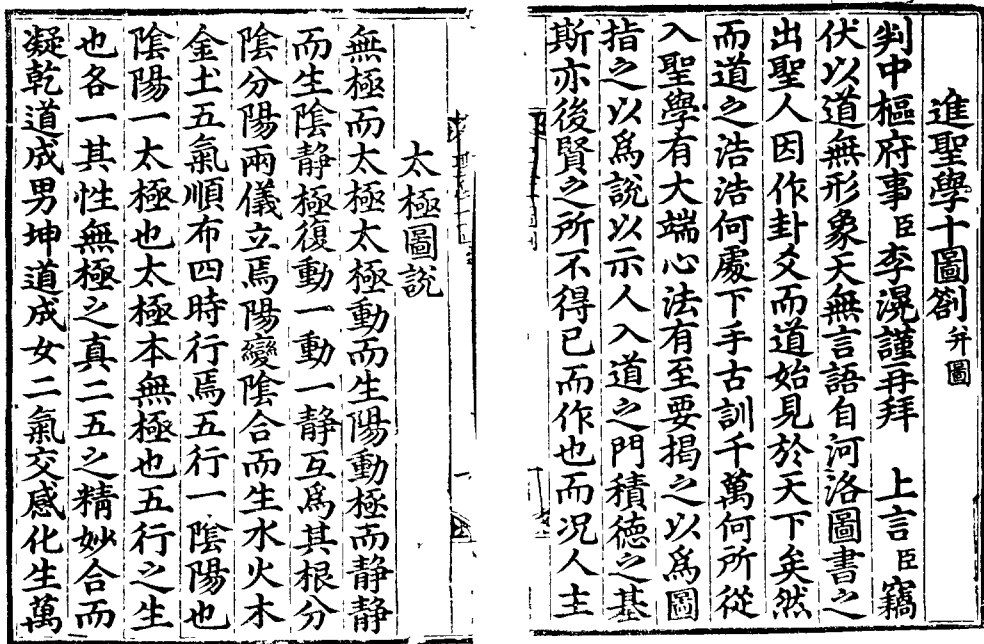 進聖學十圖劄并圖
判中樞府事臣李滉謹再拜　上言臣竊
伏以道無形象天無言語自河洛圖書之
出聖人因作卦爻而道始見於天下矣然
而道之浩浩何處下手古訓千萬何所從
入聖學有大端心法有至要揭之以爲圖
指之以爲說以示人入道之門積德之基
斯亦後賢之所不得已而作也而况人主
太極圖說
無極而太極太極動而生陽動極而静静
而生陰静極復動一動一静互爲其根分
陰分陽兩儀立焉陽變陰合而生水火木
金土五氣順布四時行焉五行一陰陽也
陰陽一太極也太極本無極也五行之生
也各一其性無極之真二五之精妙合而
凝乾道成男坤道成女二氣交感化生萬